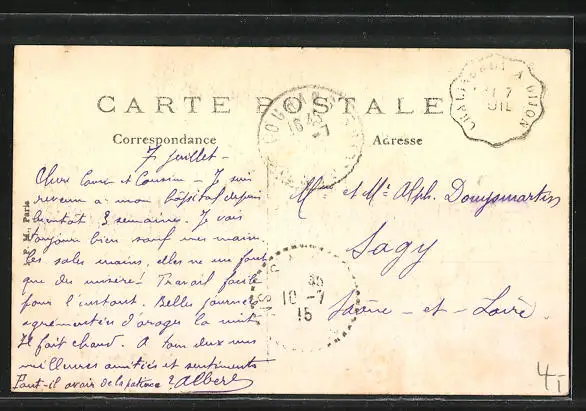 CARTE POSTALE
Correspondance
Adresse
7 Juillet -
Chers Cousin et Cousine - Je suis
revenu à mon hôpital depuis
bientôt 3 semaines. Je vais
toujours bien sauf mes mains
Les sales mains, elles ne me font
que des misères! Travail facile
pour l'instant. Belles journées
agrémentées d'orages la nuit
Il fait chaud. A tous deux mes
meilleures amitiés et sentiments
Faut-il avoir de la patience? Albert
Mme et Mr Alph.
Sagy
Saône - et - Loire.
A DIJON
7
10 -7
15
16
-7
M. Paris
4,-